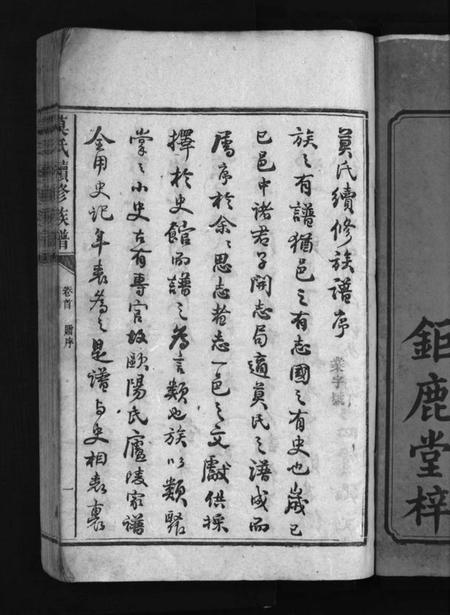 鉅鹿堂梓
莫氏續修族譜序
族之有譜猶邑之有志國之有史也歲己
巳邑中諸君子開志局適莫氏之譜成而
屬序於余余思志者志一邑之文獻供採
擇於史館而譜之為言類也族以類歸
掌之小史古有專官故歐陽氏廬陵家譜
全用史記年表為之是譜與史相表裏
莫氏續修族譜
卷首
譜序
一